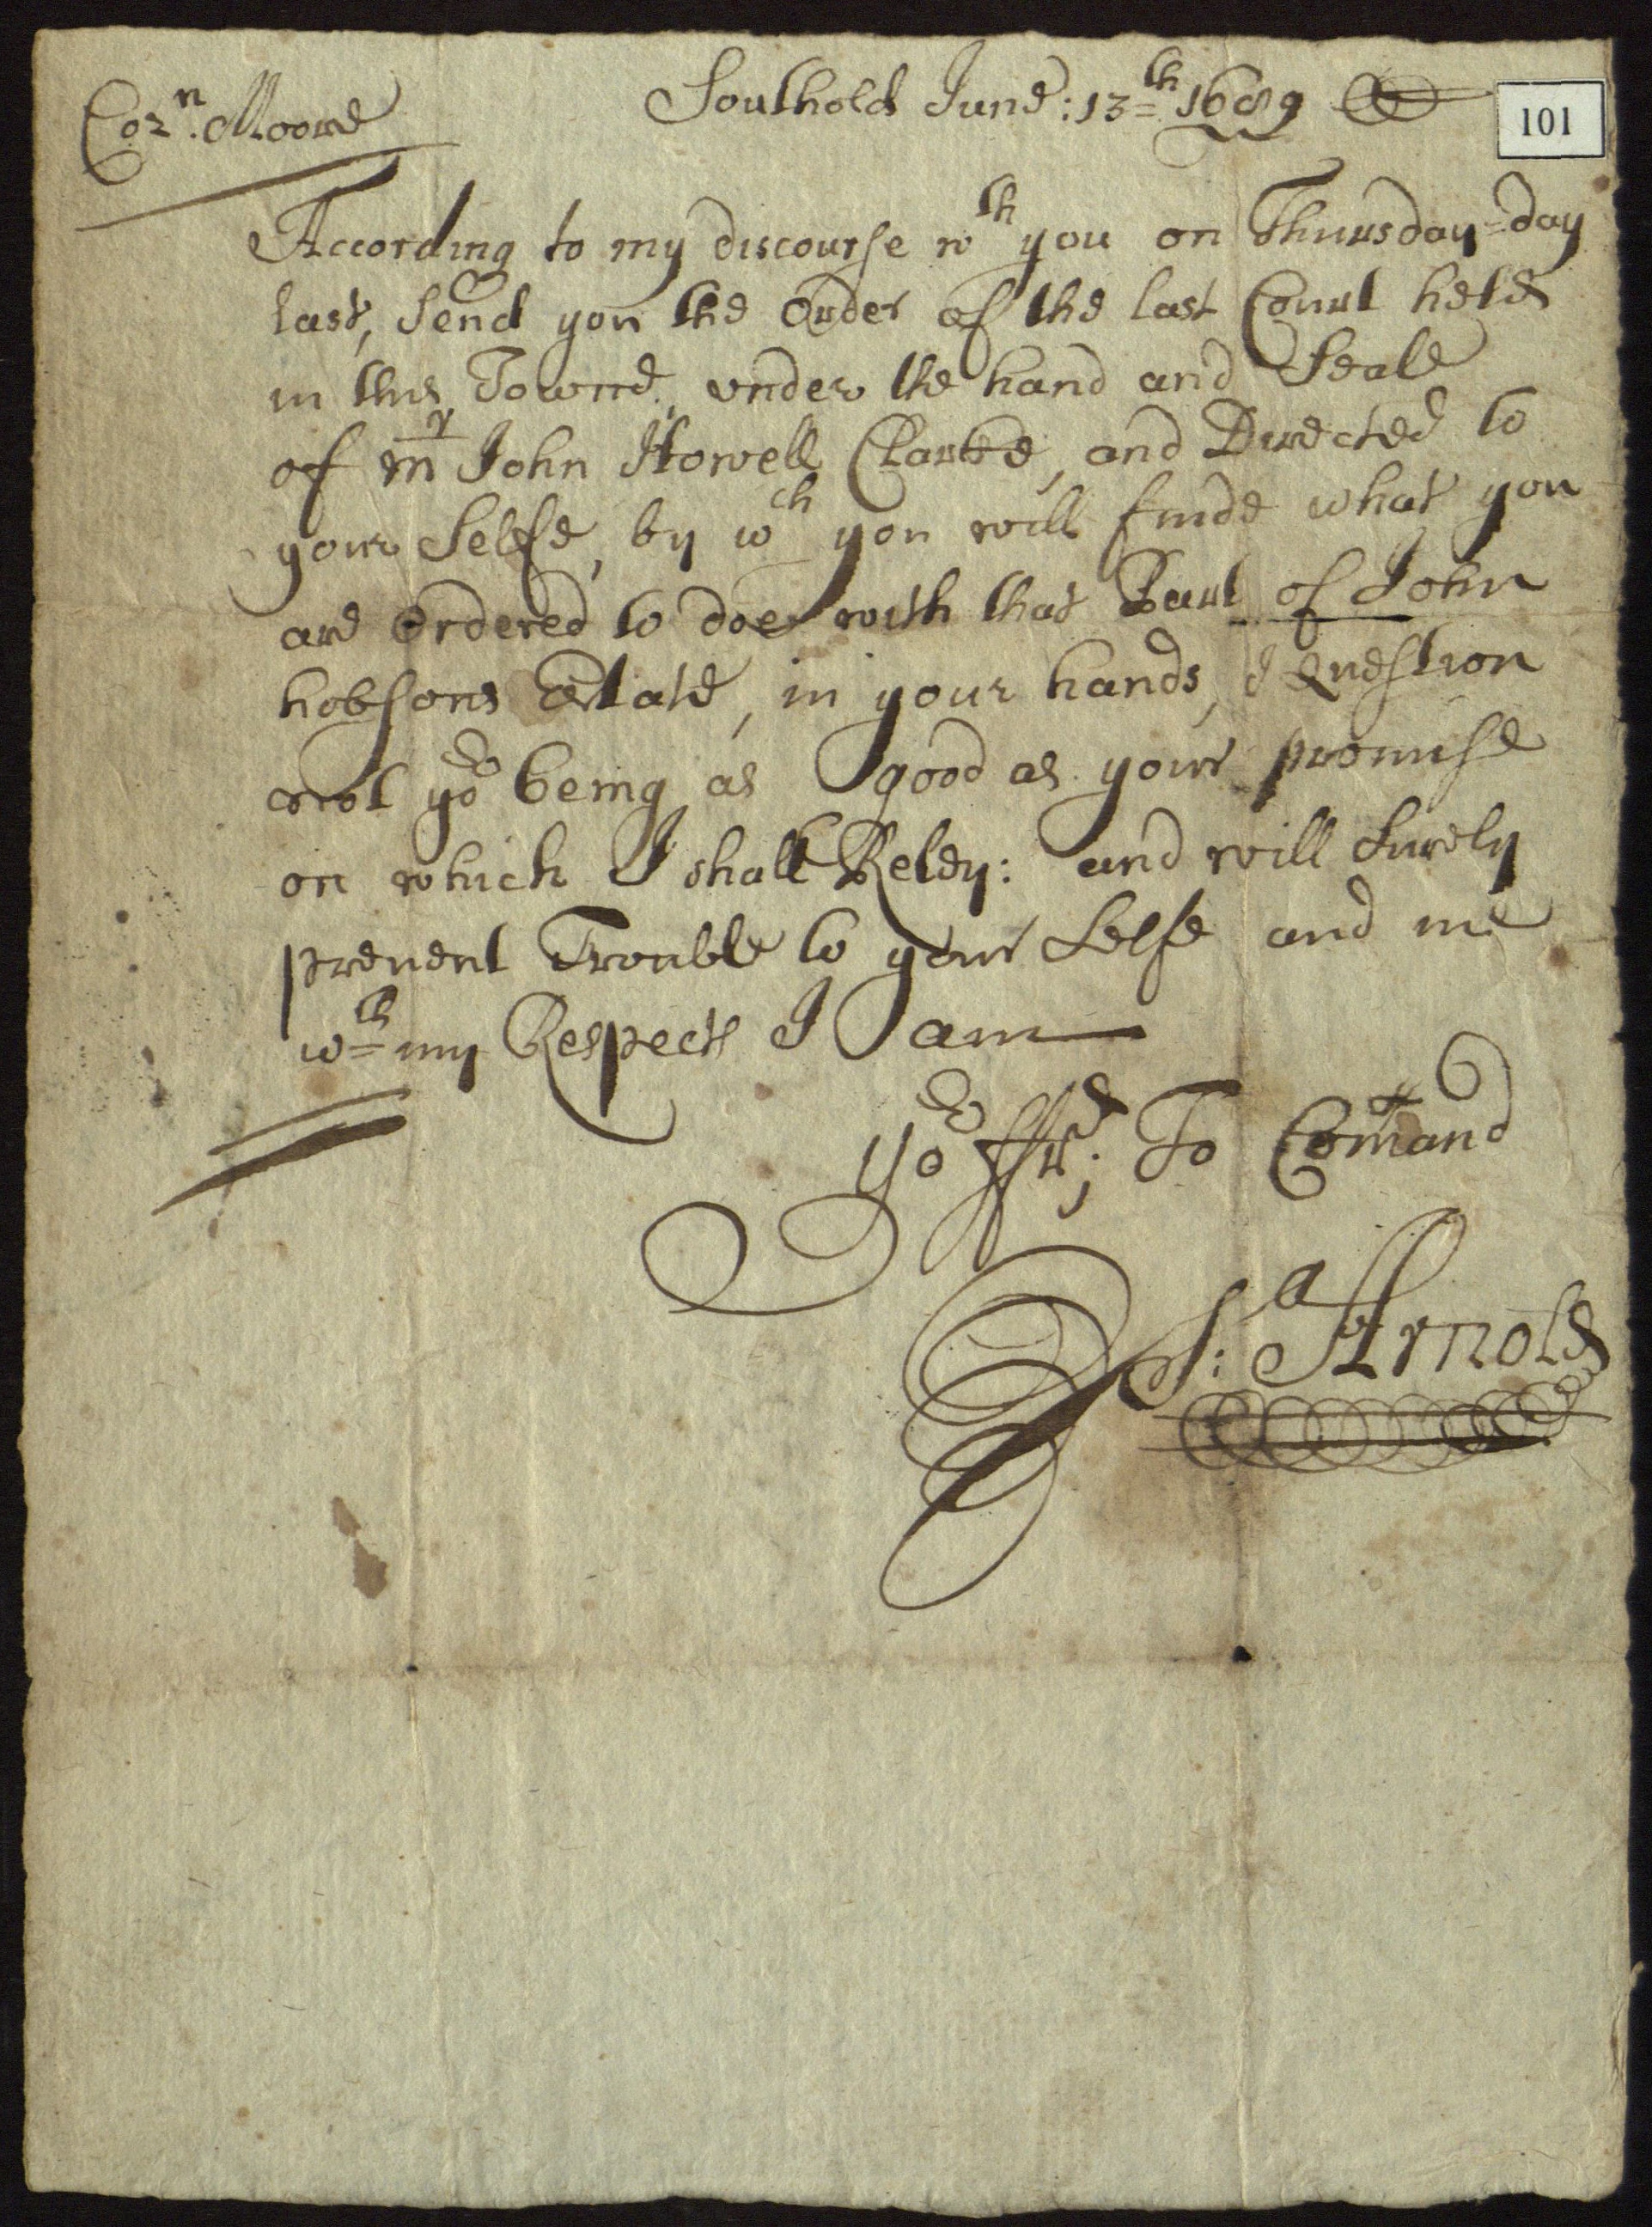 Corn. Moore
Southold June: 13th 1689
101
According to my discourse wth you on Thursday=day
last, Send you the Order of the last Court held
in this Towne, vnder the hand and Seale
of mr John Howell Clarke, and Directed to
your Selfe, by wch you will finde what you
are Ordered to doe with that Part of John
hobsons Estate, in your hands, I Question
not yor being as good as your promise
on which I shall Reley: and will Surely
preuent Trouble to your Selfe and me
wth my Respects I am
yor ffrd; To Comand
I: Arnold